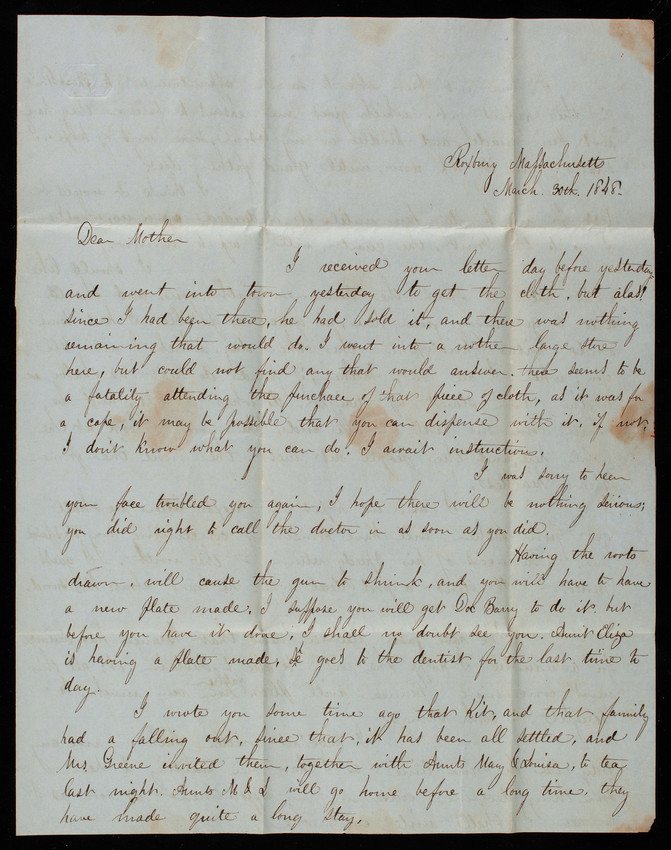 Roxbury Massachusetts
March. 30th. 1848.
Dear Mother
I received your letter day before yesterday
and went into town yesterday to get the cloth, but alas!
since I had been there, he had sold it, and there was nothing
remaining that would do. I went into a nother large store
here, but could not find any that would answer. there seems to be
a fatality attending the purchace of that piece of cloth, as it was for
a cape, it may be possible that you can dispense with it, if not,
I don't know what you can do. I await instruction.
I was sorry to hear
your face troubled you again, I hope there will be nothing serious;
you did right to call the doctor in as soon as you did.
Having the roots
drawn, will cause the gum to shrink, and you will have to have
a new plate made. I suppose you will get Doc Barry to do it. but
before you have it done, I shall no doubt see you. Aunt Eliza
is having a plate made, goes to the dentist for the last time to
day.
I wrote you some time ago that Kit, and that family
had a falling out, since that, it has been all settled, and
Mrs. Greene invited them, together with Aunts Mary & Louisa, to tea
last night. Aunts M & L will go home before a long time, they
have made quite a long stay.